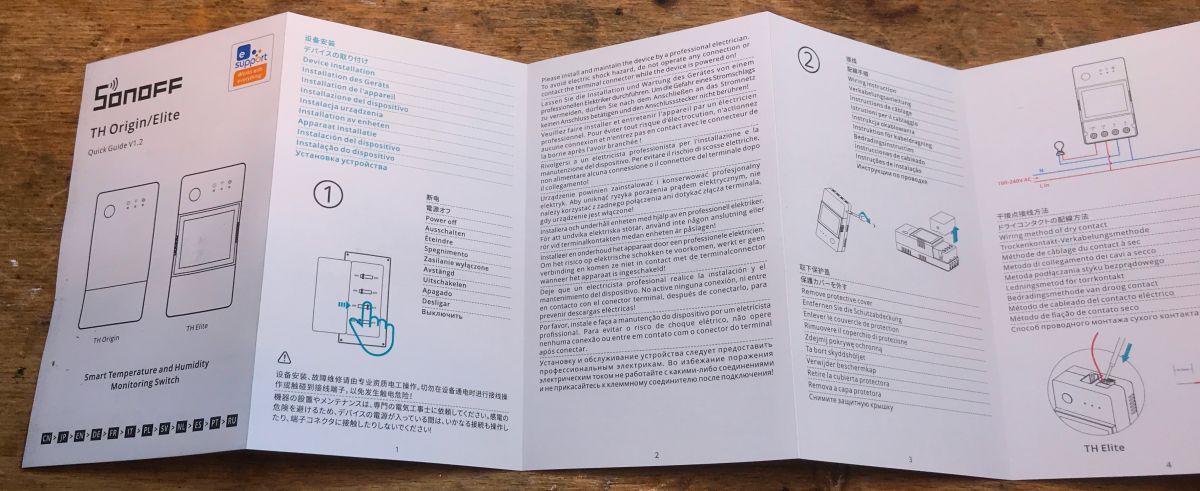 SONOFF
e
support
Works with
everything
TH Origin/Elite
Quick Guide V1.2
TH Origin
TH Elite
Smart Temperature and Humidity
Monitoring Switch
CN > JP > EN > DE > FR > IT > PL > SV > NL > ES > PT > RU
设备安装
デバイスの取り付け
Device installation
Installation des Geräts
Installation de l'appareil
Installazione del dispositivo
Instalacja urządzenia
Installation av enheten
Apparaat installatie
Instalación del dispositivo
Instalação do dispositivo
Установка устройства
1
断电
電源オフ
Power off
Ausschalten
Éteindre
Spegnimento
Zasilanie wyłączone
Avstängd
Uitschakelen
Apagado
Desligar
Выключить
设备安装、故障维修请由专业资质电工操作,切勿在设备通电时进行接线操
作或触碰到接线端子,以免发生触电危险!
機器の設置やメンテナンスは、専門の電気工事士に依頼してください。感電の
危険を避けるため、デバイスの電源が入っている間は、いかなる接続も操作し
たり、端子コネクタに接触したりしないでください!
1
Please install and maintain the device by a professional electrician.
To avoid electric shock hazard, do not operate any connection or
contact the terminal connector while the device is powered on!
Lassen Sie die Installation und Wartung des Gerätes von einem
professionellen Elektriker durchführen. Um die Gefahr eines Stromschlags
zu vermeiden, dürfen Sie nach dem Anschließen an das Stromnetz
keinen Anschluss betätigen und den Anschlussstecker nicht berühren!
Veuillez faire installer et entretenir l'appareil par un électricien
professionnel. Pour éviter tout risque d'électrocution, n'actionnez
aucune connexion et n'entrez pas en contact avec le connecteur de
la borne après l'avoir branchée !
Rivolgersi a un elettricista professionista per l'installazione e la
manutenzione del dispositivo. Per evitare il rischio di scosse elettriche,
non alimentare alcuna connessione o il connettore del terminale dopo
il collegamento!
Urządzenie powinien zainstalować i konserwować profesjonalny
elektryk. Aby uniknąć ryzyka porażenia prądem elektrycznym, nie
należy korzystać z żadnego połączenia ani dotykać złącza terminala,
gdy urządzenie jest włączone!
Installera och underhåll enheten med hjälp av en professionell elektriker.
För att undvika elektriska stötar, använd inte någon anslutning eller
rör vid terminalkontakten medan enheten är påslagen!
Installeer en onderhoud het apparaat door een professionele elektricien.
Om het risico op elektrische schokken te voorkomen, werkt er geen
verbinding en komen ze niet in contact met de terminalconnector
wanneer het apparaat is ingeschakeld!
Deje que un electricista profesional realice la instalación y el
mantenimiento del dispositivo. No active ninguna conexión, ni entre
en contacto con el conector terminal, después de conectarlo, para
prevenir descargas eléctricas!
Por favor, instale e faça a manutenção do dispositivo por um eletricista
profissional. Para evitar o risco de choque elétrico, não opere
nenhuma conexão ou entre em contato com o conector do terminal
após conectar.
Установку и обслуживание устройства следует предоставить
профессиональным электрикам. Во избежание поражения
электрическим током не работайте с какими-либо соединениями
и не прикасайтесь к клеммному соединителю после подключения!
2
2
接线
配線手順
Wiring instruction
Verkabelungsanleitung
Instructions de câblage
Istruzioni per il cablaggio
Instrukcja okablowania
Instruktion för kabeldragning
Bedradingsinstruction
Instrucciones de cableado
Instruções de instalação
Инструкции по проводке
取下保护盖
保護カバーを外す
Remove protective cover
Entfernen Sie die Schutzabdeckung
Enlever le couvercle de protection
Rimuovere il coperchio di protezione
Zdejmij pokrywę ochronną
Ta bort skyddshöljet
Verwijder beschermkap
Retire la cubierta protectora
Remova a capa protetora
Снимите защитную крышку
3
100-240V AC
N
L In
干接点接线方法
ドライコンタクトの配線方法
Wiring method of dry contact
Trockenkontakt-Verkabelungsmethode
Méthode de câblage du contact à sec
Metodo di collegamento dei cavi a secco
Metoda podłączania styku bezprądowego
Ledningsmetod för torrkontakt
Bedradingsmethode van droog contact
Método de cableado del contacto eléctrico
Método de fiação de contato seco
Способ проводного монтажа сухого контакта
TH Elite
4